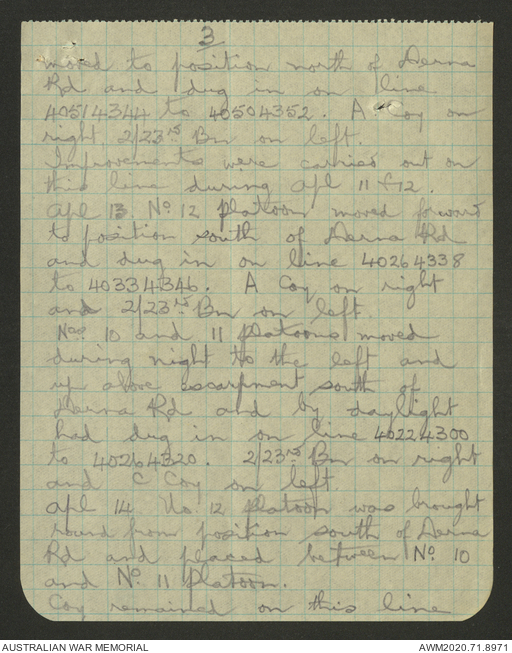 3
moved to position north of Derna
Rd and dug in on line
40514344 to 40504352. A Coy on
right 2/23rd Bn on left.
Improvements were carried out on
this line during Apl 11 & 12.
Apl 13 No 12 Platoon moved forward
to position south of Derna Rd
and dug in on line 40264338
to 40334346. A Coy on right
and 2/23rd Bn on left.
Nos 10 and 11 Platoons moved
during night to the left and
up above escarpment south of
Derna Rd and by daylight
had dug in on line 40224300
to 40264320. 2/23rd Bn on right
and C Coy on left.
Apl 14 No 12 Platoon was brought
round from position south of Derna
Rd and placed between No 10
and No 11 Platoon.
Coy remained on this line
AUSTRALIAN WAR MEMORIAL
AWM2020.71.8971